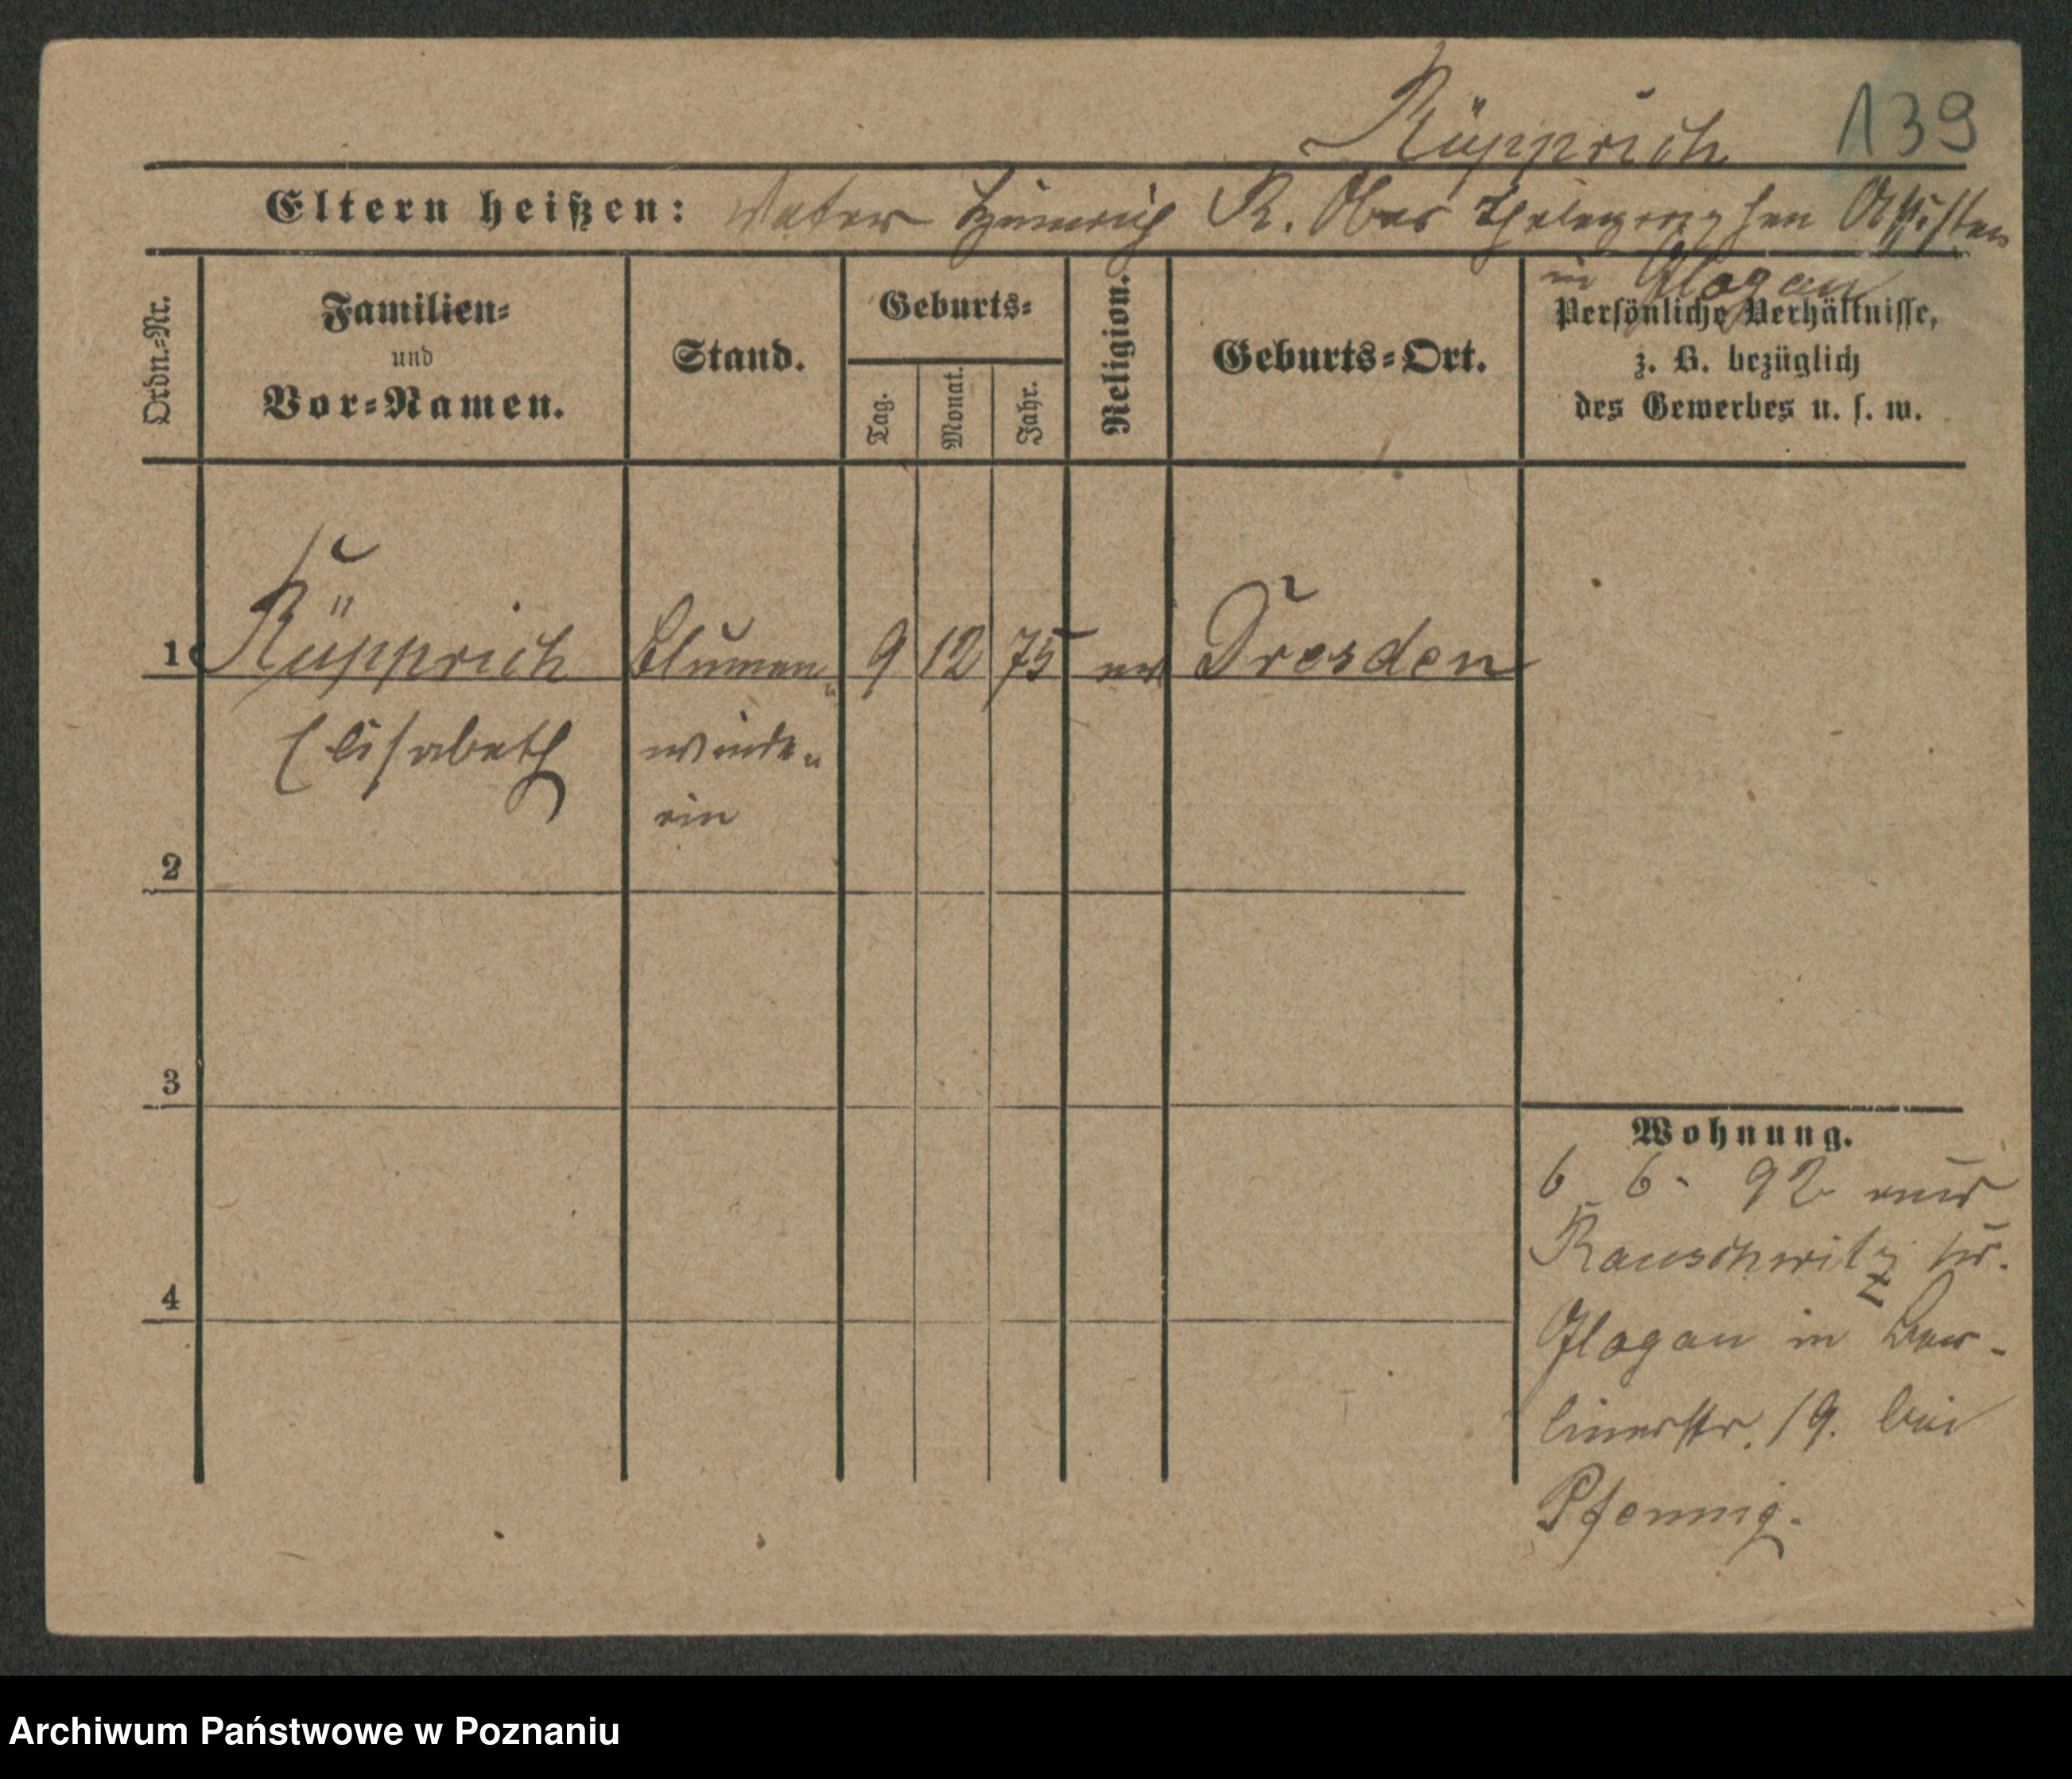 Rüpprich 139
Eltern heißen: Vater Heinrich R. Ober Thelegraphen Assisten
in Glogau
Ordn.-Nr.
Familien-
und
Vor-Namen.
Stand.
Geburts-
Tag.
Monat.
Jahr.
Religion.
Geburts-Ort.
Persönliche Verhältnisse,
z. B. bezüglich
des Gewerbes u. s. w.
1 Rüpprich Blumen- 9 12 75 ev Dresden
Elisabeth
binde-
rin
2
3
4
Wohnung.
6 6. 92 aus
Rauschwitz Kr.
Glogau in Ber-
linerstr. 19. bei
Pfennig.
Archiwum Państwowe w Poznaniu